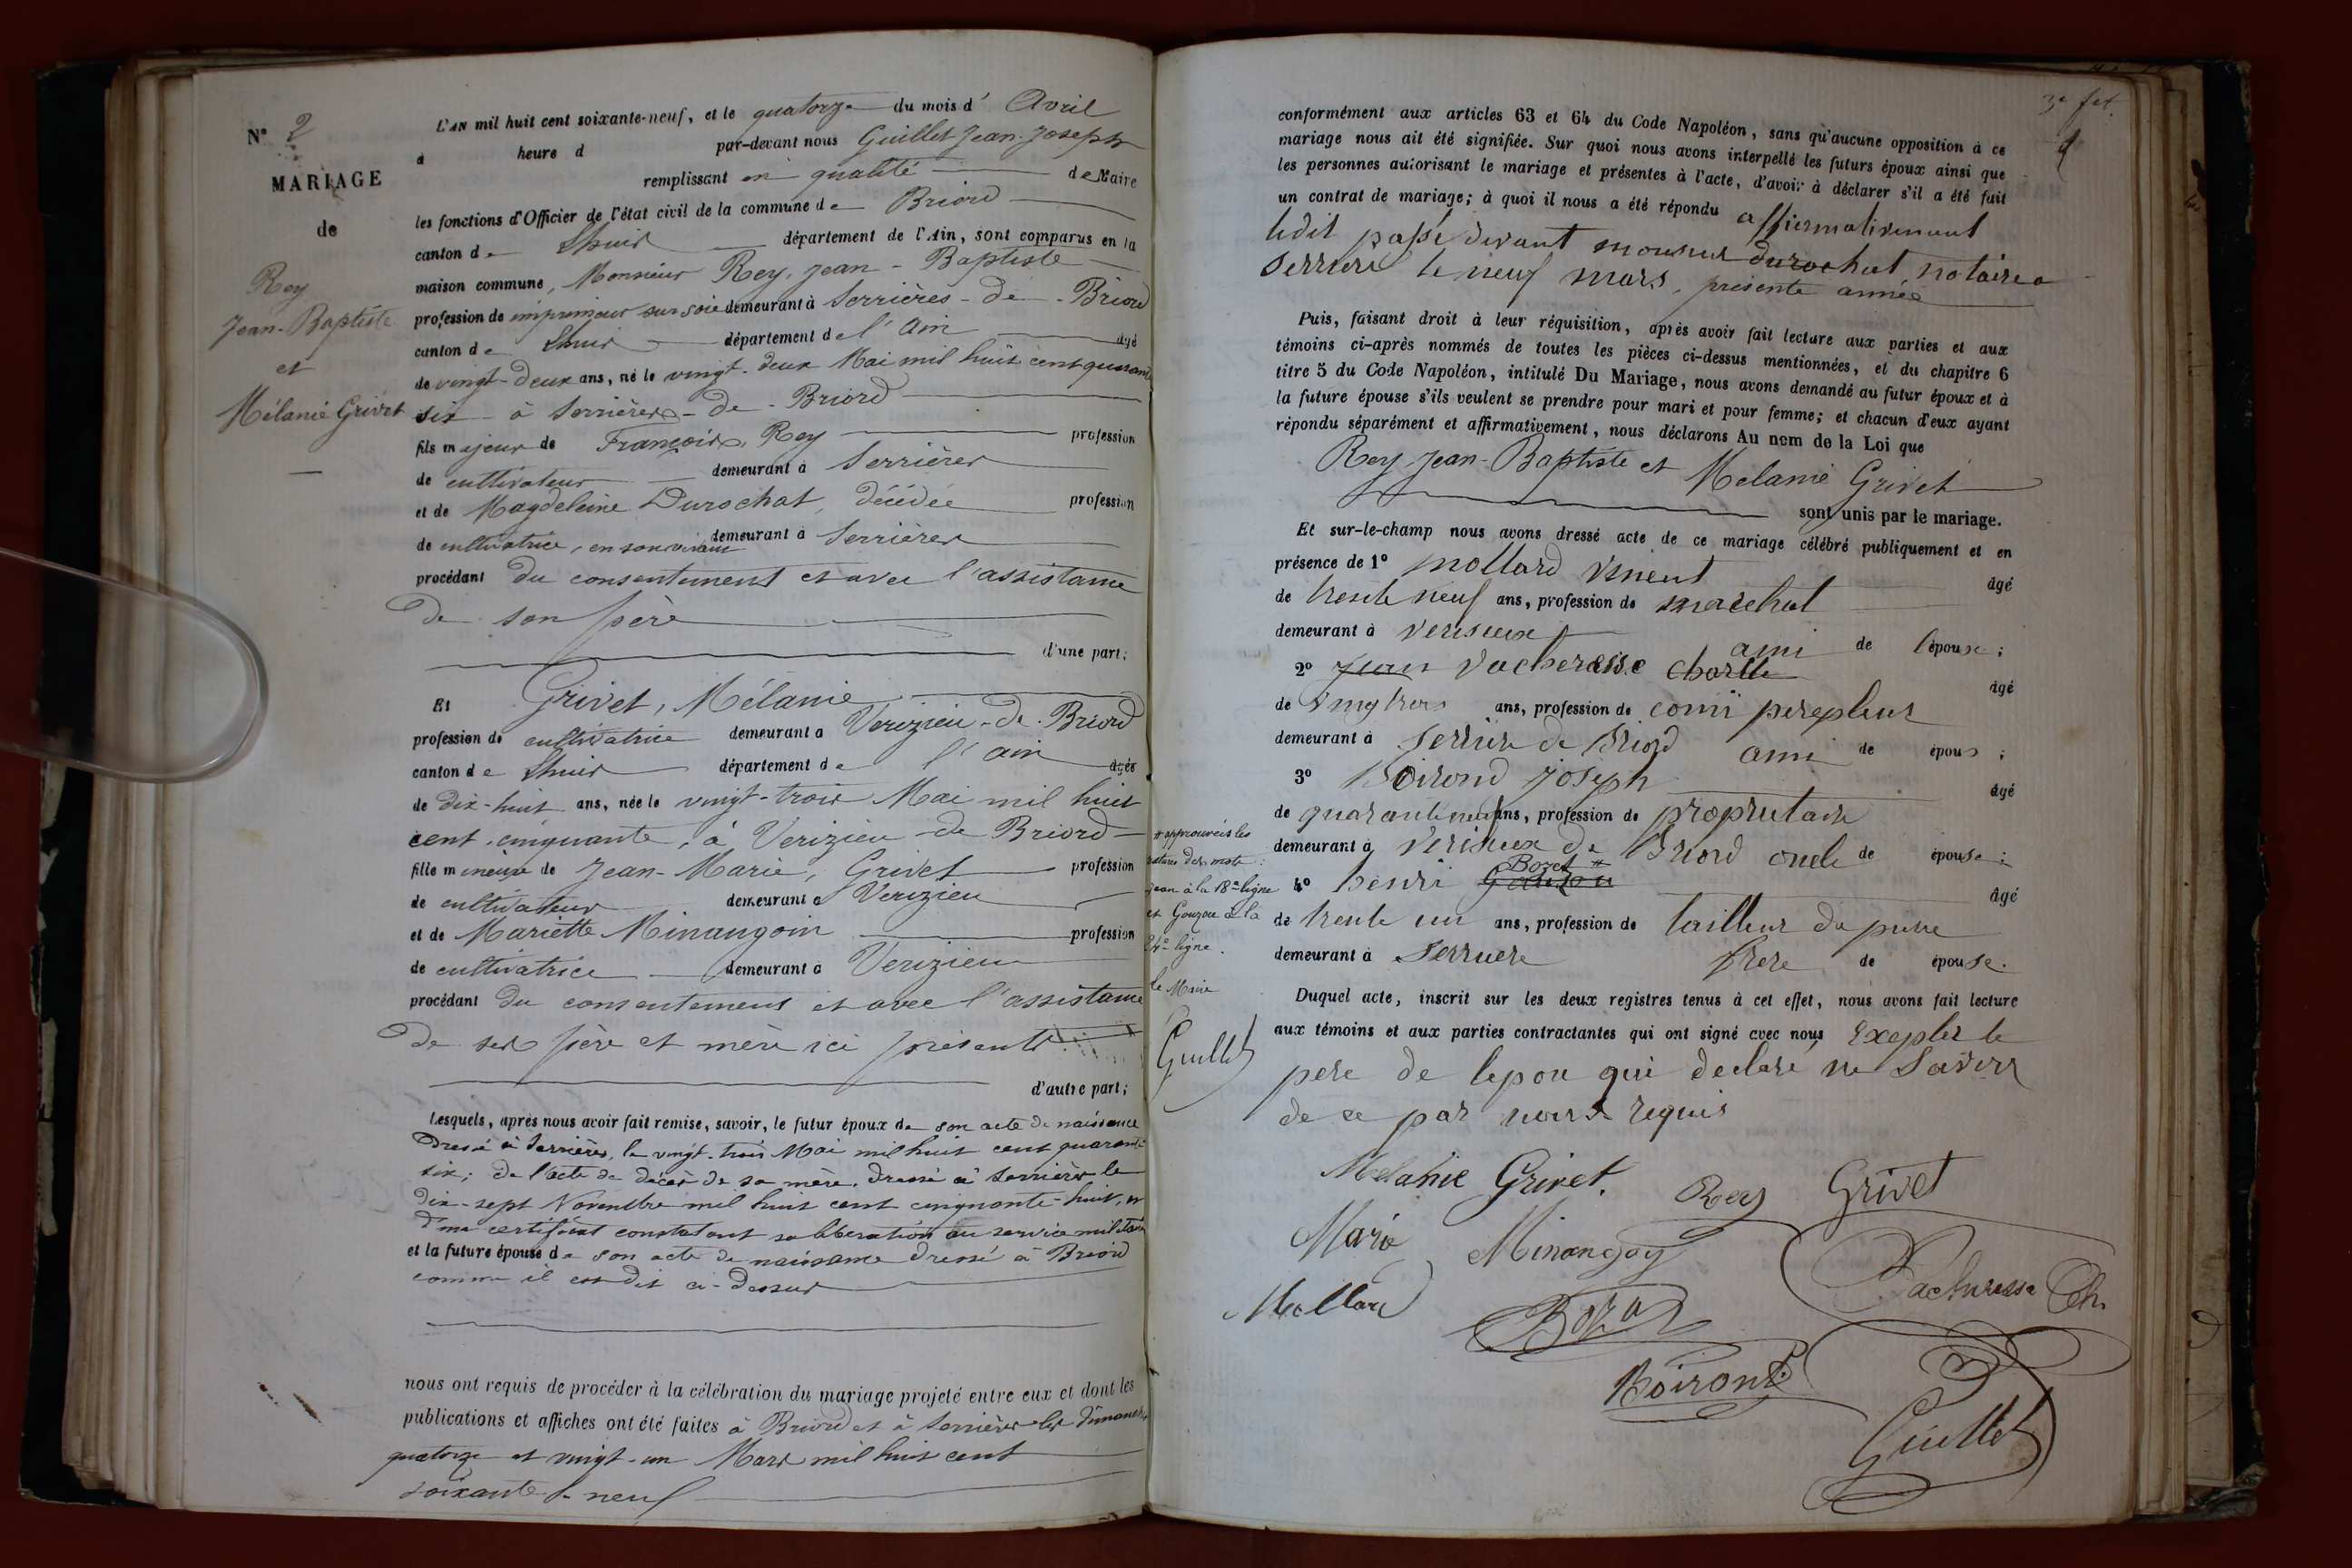 N° 2
MARIAGE
de
Rey
Jean-Baptiste
et
Mélanie Grivet
L'AN mil huit cent soixante-neuf, et le quatorze du mois d' Avril
à heure d par-devant nous Guillet Jean-Joseph
remplissant en qualité de Maire
les fonctions d'Officier de l'état civil de la commune de Briord
canton de Lhuis département de l'Ain, sont comparus en la
maison commune, Monsieur Rey, Jean-Baptiste
profession de imprimeur sur soie demeurant à Serrières-de-Briord
canton de Lhuis département de l'Ain âgé
de vingt-deux ans, né le vingt-deux Mai mil huit cent quarante
six à Serrières-de-Briord
fils majeur de François Rey profession
de cultivateur demeurant à Serrières
et de Magdeleine Durochat, décédée profession
de cultivatrice, en son vivant demeurant à Serrières
procédant du consentement et avec l'assistance
de son père
d'une part;
Et Grivet, Mélanie
profession de cultivatrice demeurant à Verizieu-de-Briord
canton de Lhuis département de l'ain âgée
de dix-huit ans, née le vingt-trois Mai mil huit
cent cinquante, à Verizieu-de-Briord
fille mineure de Jean-Marie, Grivet profession
de cultivateur demeurant à Verizieu
et de Mariette Minangoin profession
de cultivatrice demeurant à Verizieu
procédant du consentement et avec l'assistance
de ses père et mère ici présents
d'autre part;
Lesquels, après nous avoir fait remise, savoir, le futur époux de son acte de naissance
dressé à Serrières, le vingt-trois Mai mil huit cent quarante
six; de l'acte de décès de sa mère, dressé à Serrières le
dix-sept Novembre mil huit cent cinquante-huit, et
d'un certificat constatant sa libération du service militaire
et la future épouse de son acte de naissance dressé à Briord
comme il est dit ci-dessus
nous ont requis de procéder à la célébration du mariage projeté entre eux et dont les
publications et affiches ont été faites à Briord et à Serrières les dimanches
quatorze et vingt-un Mars mil huit cent
soixante-neuf
conformément aux articles 63 et 64 du Code Napoléon, sans qu'aucune opposition à ce
mariage nous ait été signifiée. Sur quoi nous avons interpellé les futurs époux ainsi que
les personnes autorisant le mariage et présentes à l'acte, d'avoir à déclarer s'il a été fait
un contrat de mariage; à quoi il nous a été répondu affirmativement
ledit passé devant monsieur durochat notaire a
Serriere le neuf mars, présente année
Puis, faisant droit à leur réquisition, après avoir fait lecture aux parties et aux
témoins ci-après nommés de toutes les pièces ci-dessus mentionnées, et du chapitre 6
titre 5 du Code Napoléon, intitulé Du Mariage, nous avons demandé au futur époux et à
la future épouse s'ils veulent se prendre pour mari et pour femme; et chacun d'eux ayant
répondu séparément et affirmativement, nous déclarons Au nom de la Loi que
Rey Jean-Baptiste et Mélanie Grivet
sont unis par le mariage.
Et sur-le-champ nous avons dressé acte de ce mariage célébré publiquement et en
présence de 1° mollard vinent âgé
de trente neuf ans, profession de marechal
demeurant à verisieux ami de l'épouse;
2° Jean Vacheresse Charlle âgé
de vingtrois ans, profession de comi perepteur
demeurant à Serrière de Briord ami de épous;
3° Boirond joseph âgé
de quarante neuf ans, profession de propriutaire
demeurant à verisieux de Briord oncle de épouse;
4° henri Gouzou Bozet # âgé
de trente un ans, profession de tailleur de pierre
demeurant à Serriere frere de épouse.
# approuvées les
ratures des mots:
jean à la 18e ligne
et Gouzou à la
24e ligne.
le Maire
Guillet
Duquel acte, inscrit sur les deux registres tenus à cet effet, nous avons fait lecture
aux témoins et aux parties contractantes qui ont signé avec nous Exepter le
pere de lepou qui declare ne Savoir
de ce par nous requis
Melanie Grivet. Rey Grivet
Marie Minangoy Vacheresse Ch.
Mollard Bozet
Boirond
Guillet